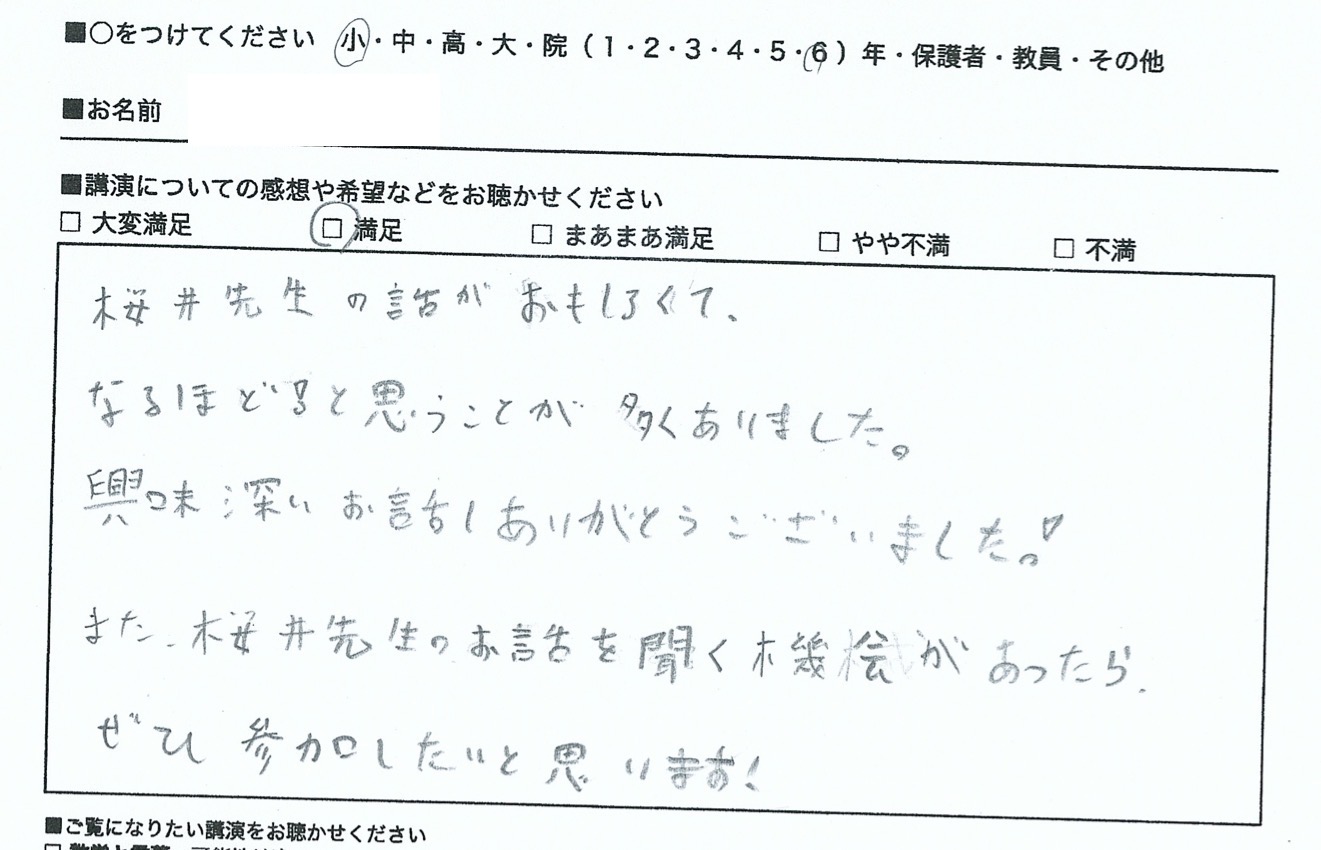 ■○をつけてください 小・中・高・大・院（1・2・3・4・5・6）年・保護者・教員・その他
■お名前
■講演についての感想や希望などをお聴かせください
□ 大変満足 □ 満足 □ まあまあ満足 □ やや不満 □ 不満
桜井先生の話がおもしろくて、
なるほど!と思うことが多くありました。
興味深いお話しありがとうございました。
また、桜井先生のお話を聞く機会があったら、
ぜひ参加したいと思います!
■ご覧になりたい講演をお聴かせください